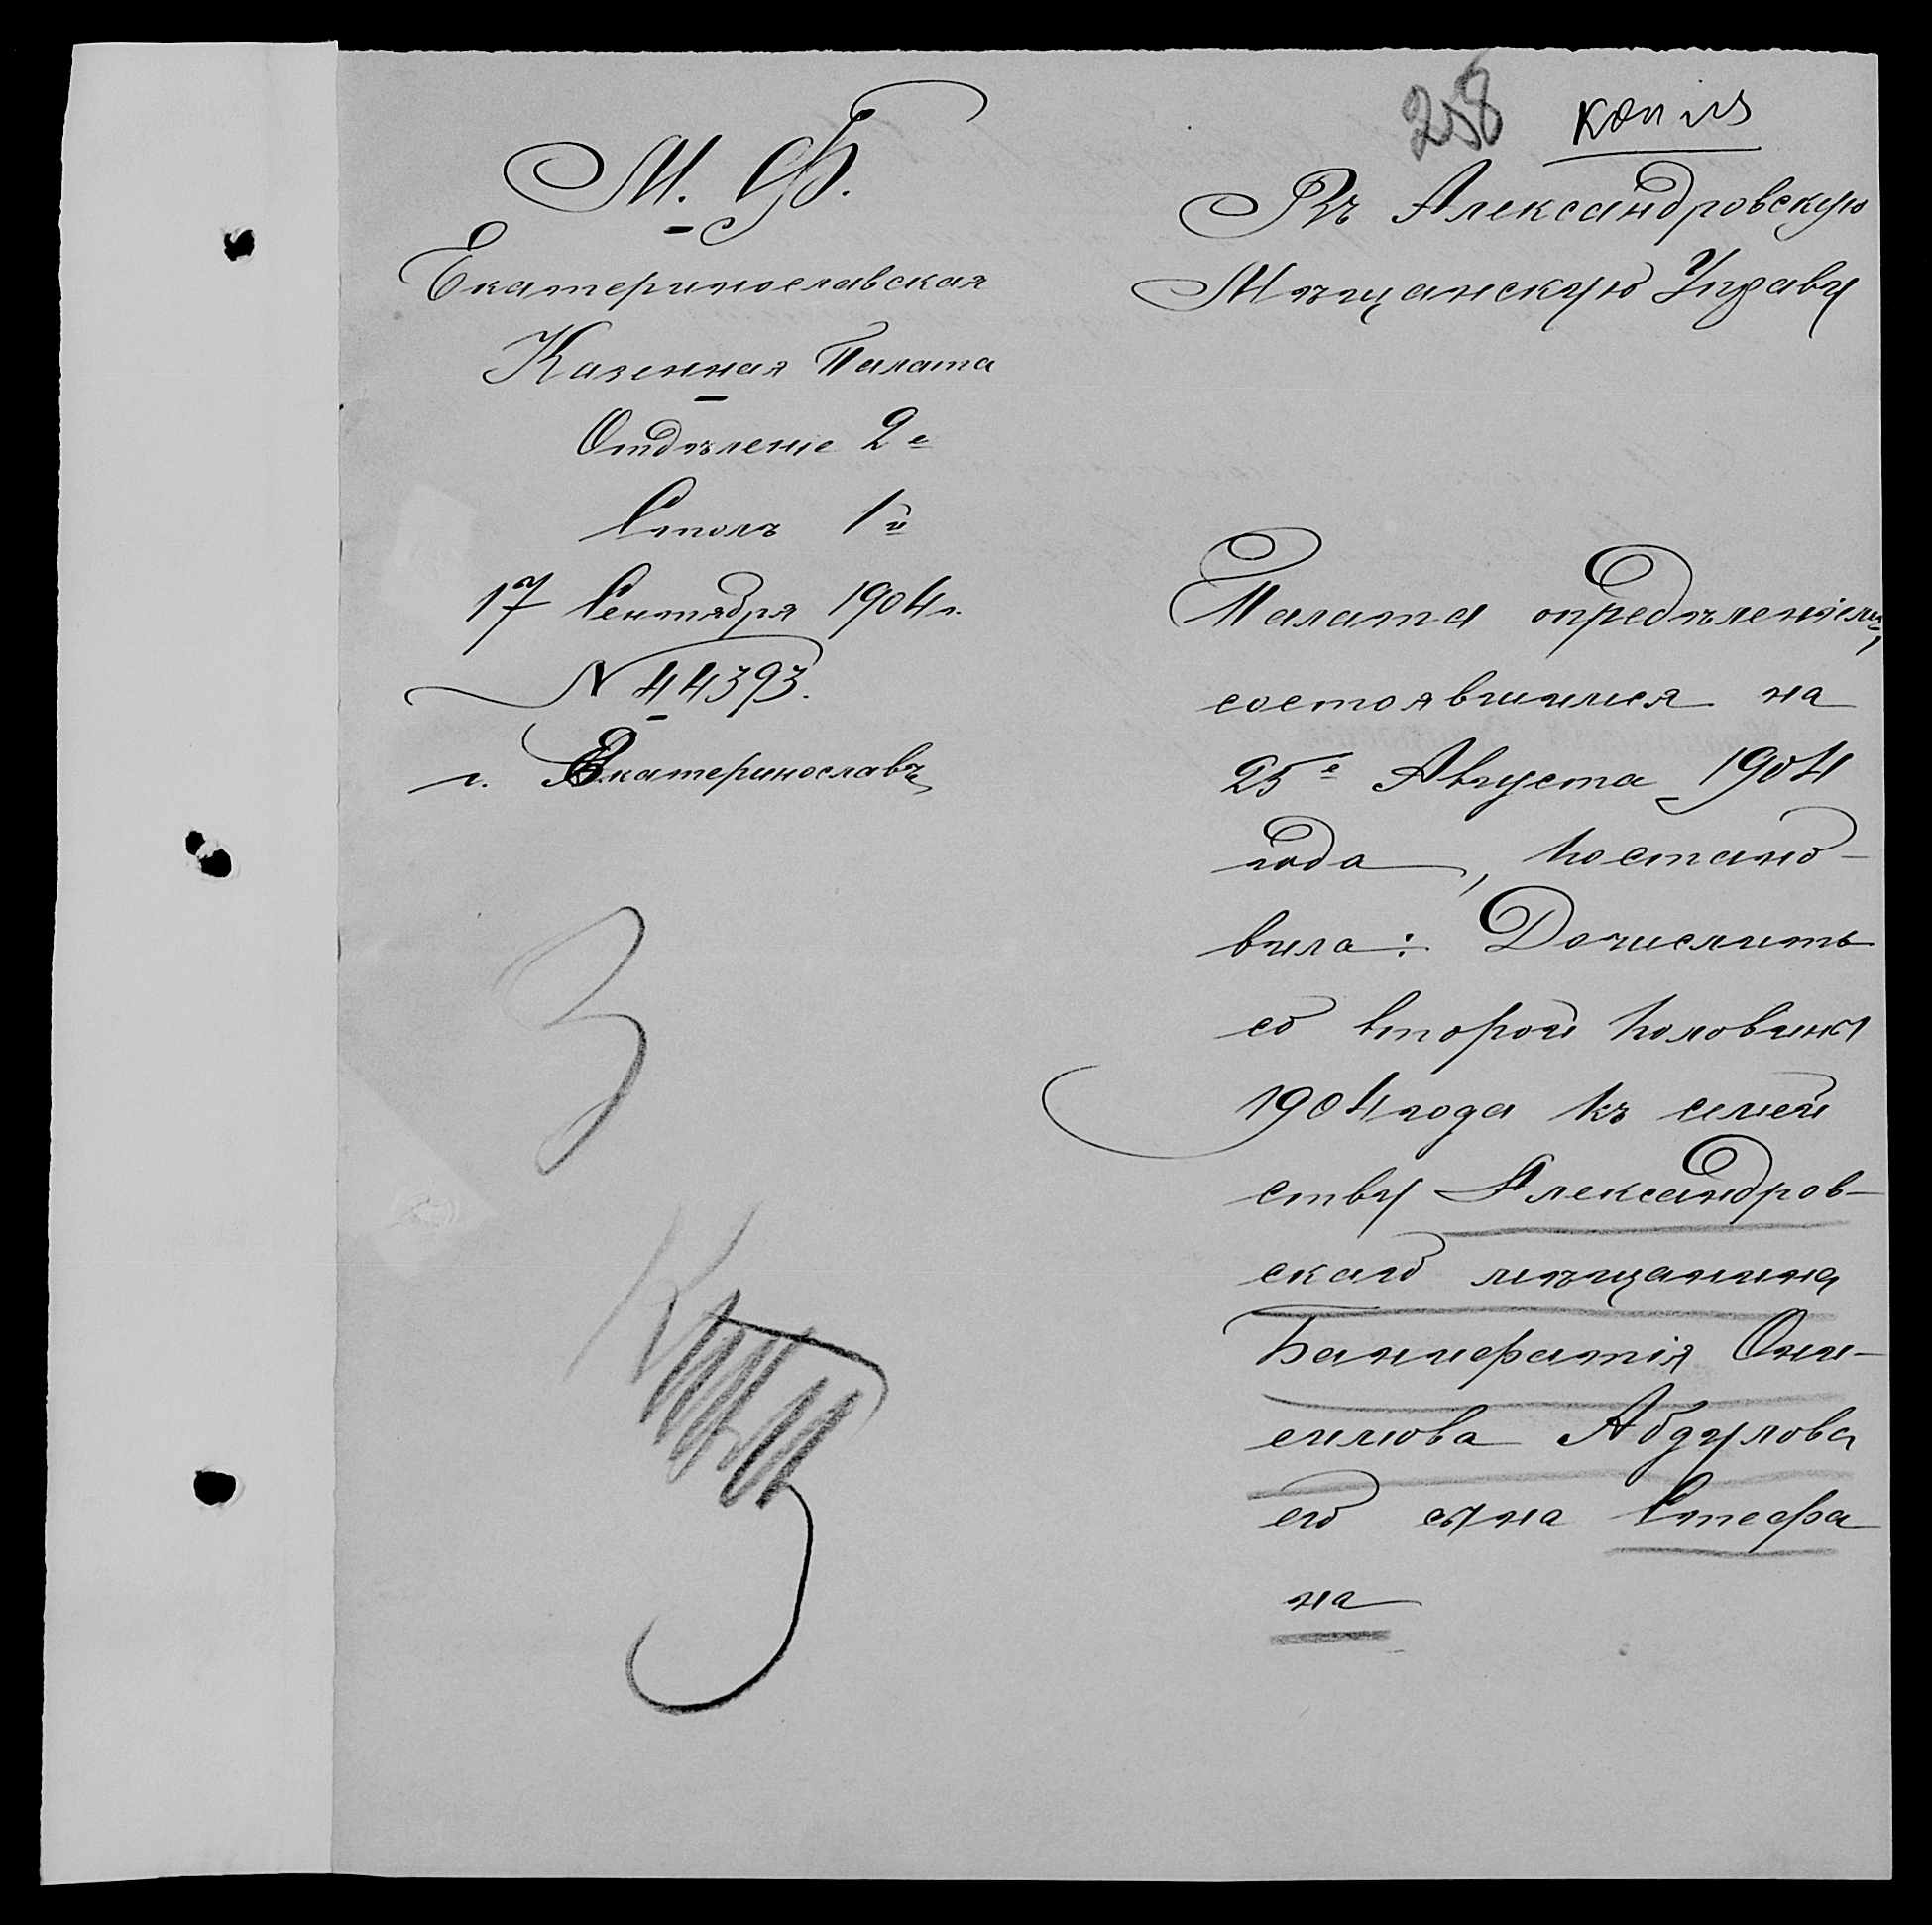 М. Ф.
Екатеринославская
Казенная Палата
Отдѣленіе 2е
Столъ 1й
17 Сентября 1904 г.
N 44393.
г. Екатеринославъ
3
258 копія
Въ Александровскую
Мѣщанскую Управу
Палата опредѣленіемъ,
состоявшимся на
25е Августа 1904
года, постано-
вила: Дочислить
со второй половины
1904 года къ семей
ству Александров-
скаго мѣщанина
Они-
симова Абдулова
его сына Стефа
на